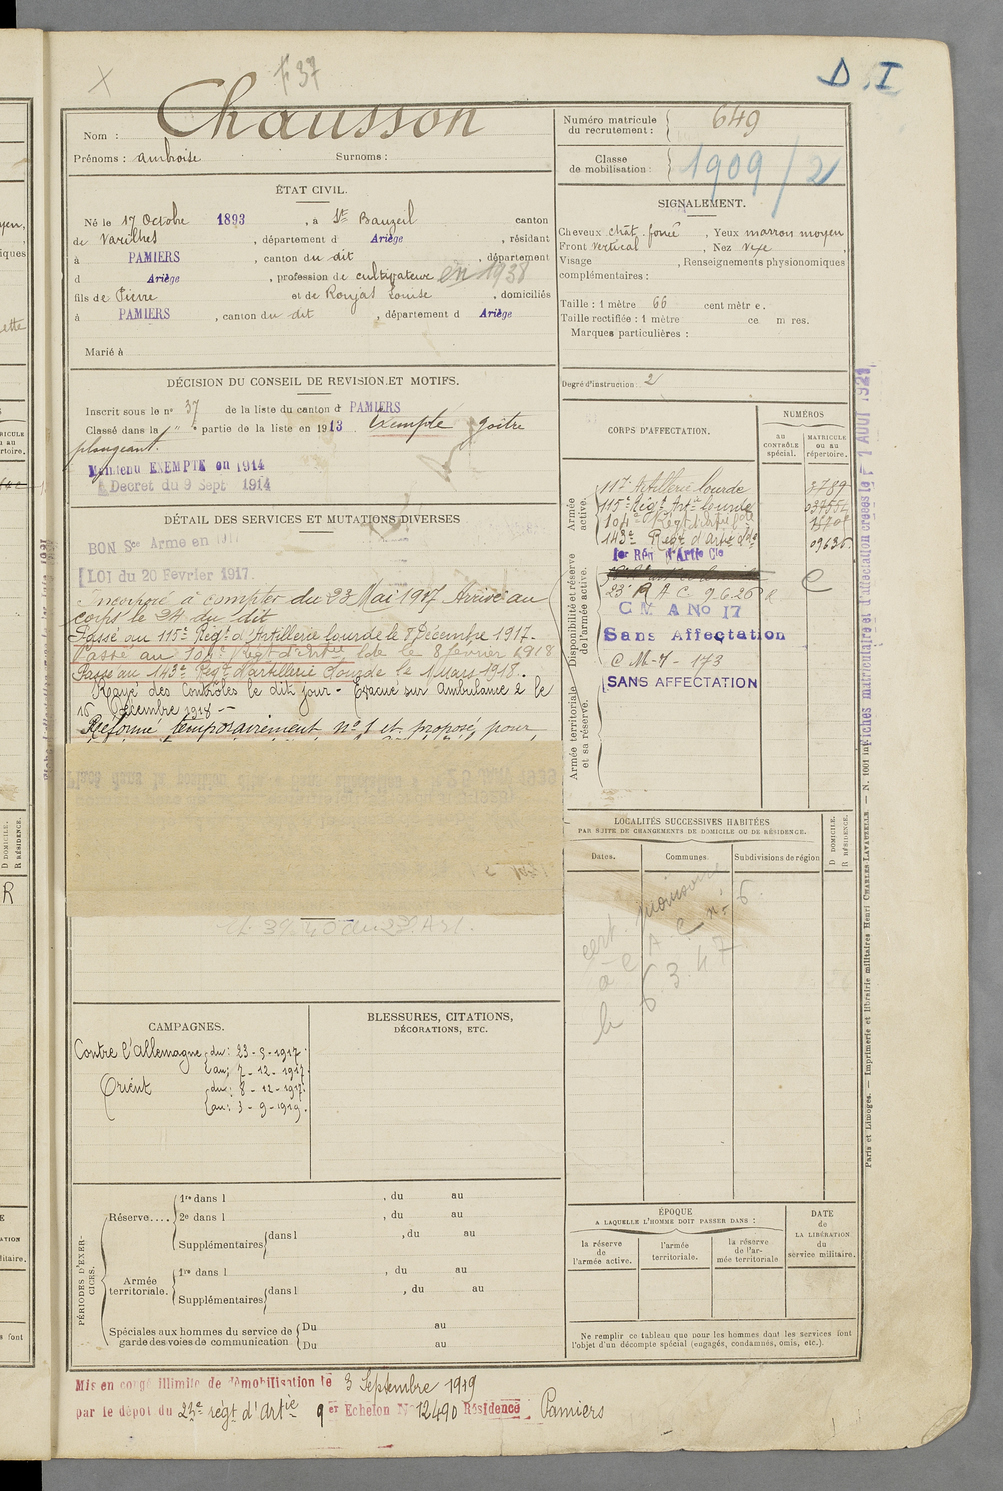 X
F 37
D I
Nom : Chausson
Prénoms : ambroise Surnoms :
Numéro matricule du recrutement : 649
Classe de mobilisation : 1909 / 2
ÉTAT CIVIL.
Né le 17 Octobre 1893, à St Bauzeil canton
de Varilhes, département d Ariège, résidant
à PAMIERS, canton du dit, département
d Ariège, profession de cultivateur en 1938
fils de Pierre et de Roujas Louise, domiciliés
à PAMIERS, canton du dit, département d Ariège
Marié à
SIGNALEMENT.
Cheveux chât. foncé, Yeux marron moyen
Front vertical, Nez vexe,
Visage , Renseignements physionomiques
complémentaires :
Taille : 1 mètre 66 centimètres.
Taille rectifiée : 1 mètre ce m res.
Marques particulières :
Degré d'instruction : 2
DÉCISION DU CONSEIL DE REVISION ET MOTIFS.
Inscrit sous le n° 37 de la liste du canton d PAMIERS
Classé dans la " partie de la liste en 1913. Exempté goitre
plongeant.
Maintenu EXEMPTE en 1914
Decret du 9 Sept 1914
DÉTAIL DES SERVICES ET MUTATIONS DIVERSES
BON Sce Arme en 1917
LOI du 20 Février 1917.
Incorporé à compter du 23 Mai 1917 Arrivé au
corps le 24 du dit
Passé au 115e Régt d'Artillerie lourde le 8 Décembre 1917.
Passé au 104e Régt d'Artie Lde le 8 février 1918
Passé au 143e Régt d'artillerie Lourde le 1 Mars 1918.
Rayé des Contrôles le dit jour - Evacué sur ambulance 2 le
16 Décembre 1918 -
Réformé temporairement n° 1 et proposé pour
CORPS D'AFFECTATION.
NUMÉROS
au CONTRÔLE spécial.
MATRICULE ou au répertoire.
Armée active.
117e Artillerie lourde 3789
115e Régt Art. lourde
104e Régt d'artie lde
143e Régt d'Artie Lde 09636
Disponibilité et réserve de l'armée active.
1er Rég d'Artie Cle
23e R A C 9.6.26 R C
C M A No 17
Sans Affectation
C M-7-173
SANS AFFECTATION
Armée territoriale et sa réserve.
Fiches matriculaire et d'affectation créées le 1 AOUT 1921
LOCALITÉS SUCCESSIVES HABITÉES
PAR SUITE DE CHANGEMENTS DE DOMICILE OU DE RÉSIDENCE.
Dates. Communes. Subdivisions de région
D DOMICILE.
R RÉSIDENCE.
cert. provisoire
à C A C n° 6.
le 6.3.47
CAMPAGNES.
Contre l'Allemagne du : 23-5-1917.
au : 7-12-1917
Orient du : 8-12-1917.
au : 3-9-1919.
BLESSURES, CITATIONS,
DÉCORATIONS, ETC.
PÉRIODES D'EXERCICES.
Réserve....
1re dans l , du au
2e dans l , du au
Supplémentaires dans l , du au
Armée territoriale.
1re dans l , du au
Supplémentaires dans l , du au
Spéciales aux hommes du service de garde des voies de communication
Du au
Du au
ÉPOQUE
A LAQUELLE L'HOMME DOIT PASSER DANS :
la réserve de l'armée active.
l'armée territoriale.
la réserve de l'armée territoriale
DATE de LA LIBÉRATION du service militaire.
Ne remplir ce tableau que pour les hommes dont les services font
l'objet d'un décompte spécial (engagés, condamnés, omis, etc.).
Mis en congé illimité de démobilisation le 3 Septembre 1919
par le dépot du 23e régt d'artie 9er Echelon N° 12490 Résidence Pamiers
Paris et Limoges. — Imprimerie et librairie militaires Henri CHARLES-LAVAUZELLE — N. 1001 in